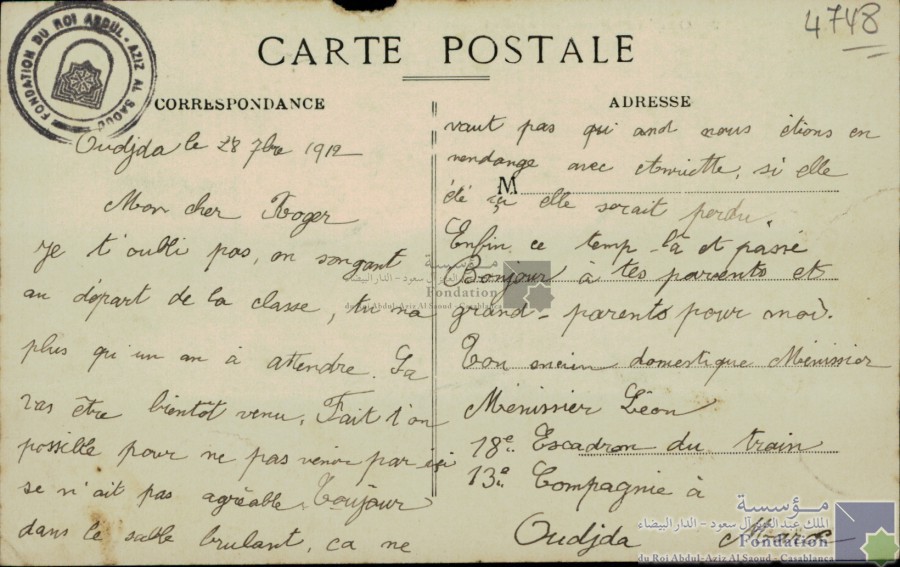 4748
FONDATION DU ROI ABDUL-AZIZ AL SAOUD
CARTE POSTALE
CORRESPONDANCE
ADRESSE
Oudjda le 28 7bre 1912
Mon cher Roger
Je t'oubli pas, on songant
au départ de la classe, tu ma
plus qu'un an à attendre. Sa
vas être bientot venu. Fait t'on
possible pour ne pas venir par içi
se n'ait pas agréable. Toujour
dans le sable brulant, ca ne
vaut pas qui and nous étions en
vendange avec Henriette, si elle
M
été çi elle serait perdu.
Enfin ce temp là et passé
Bonjour à tes parents et
grand-parents pour moi.
Ton ancien domestique Ménissier
Ménissier Léon
18e Escadron du train
13e Compagnie à
Oudjda Maroc
مؤسسة
الملك عبد العزيز آل سعود - الدار البيضاء
Fondation
du Roi Abdul-Aziz Al Saoud - Casablanca
مؤسسة
الملك عبد العزيز آل سعود - الدار البيضاء
Fondation
du Roi Abdul-Aziz Al Saoud - Casablanca